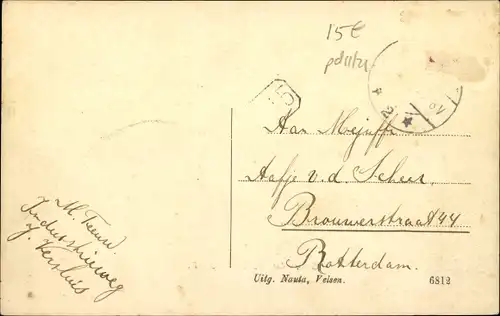 15€
Aan Mejuffr
Aafje v.d. Scheer,
Brouwerstraat 44
Rotterdam.
M.
Industrieweg
Uitg. Nauta, Velsen. 6812